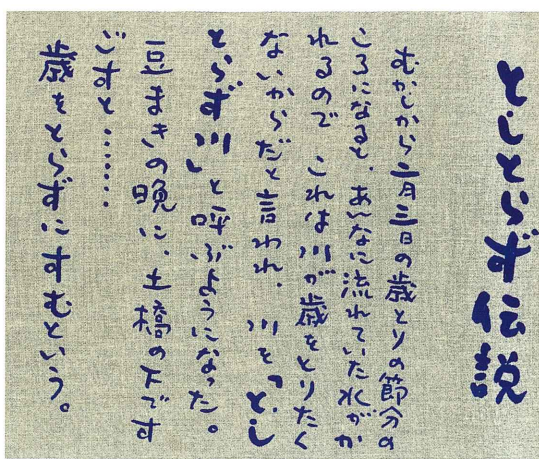 としとらず伝説
むかしから二月三日の歳とりの節分の
ころになると、あんなに流れていた水がか
れるので これは川が歳をとりたく
ないからだと言われ、川を「とし
とらず川」と呼ぶようになった。
豆まきの晩に、土橋の下です
ごすと……
歳をとらずにすむという。